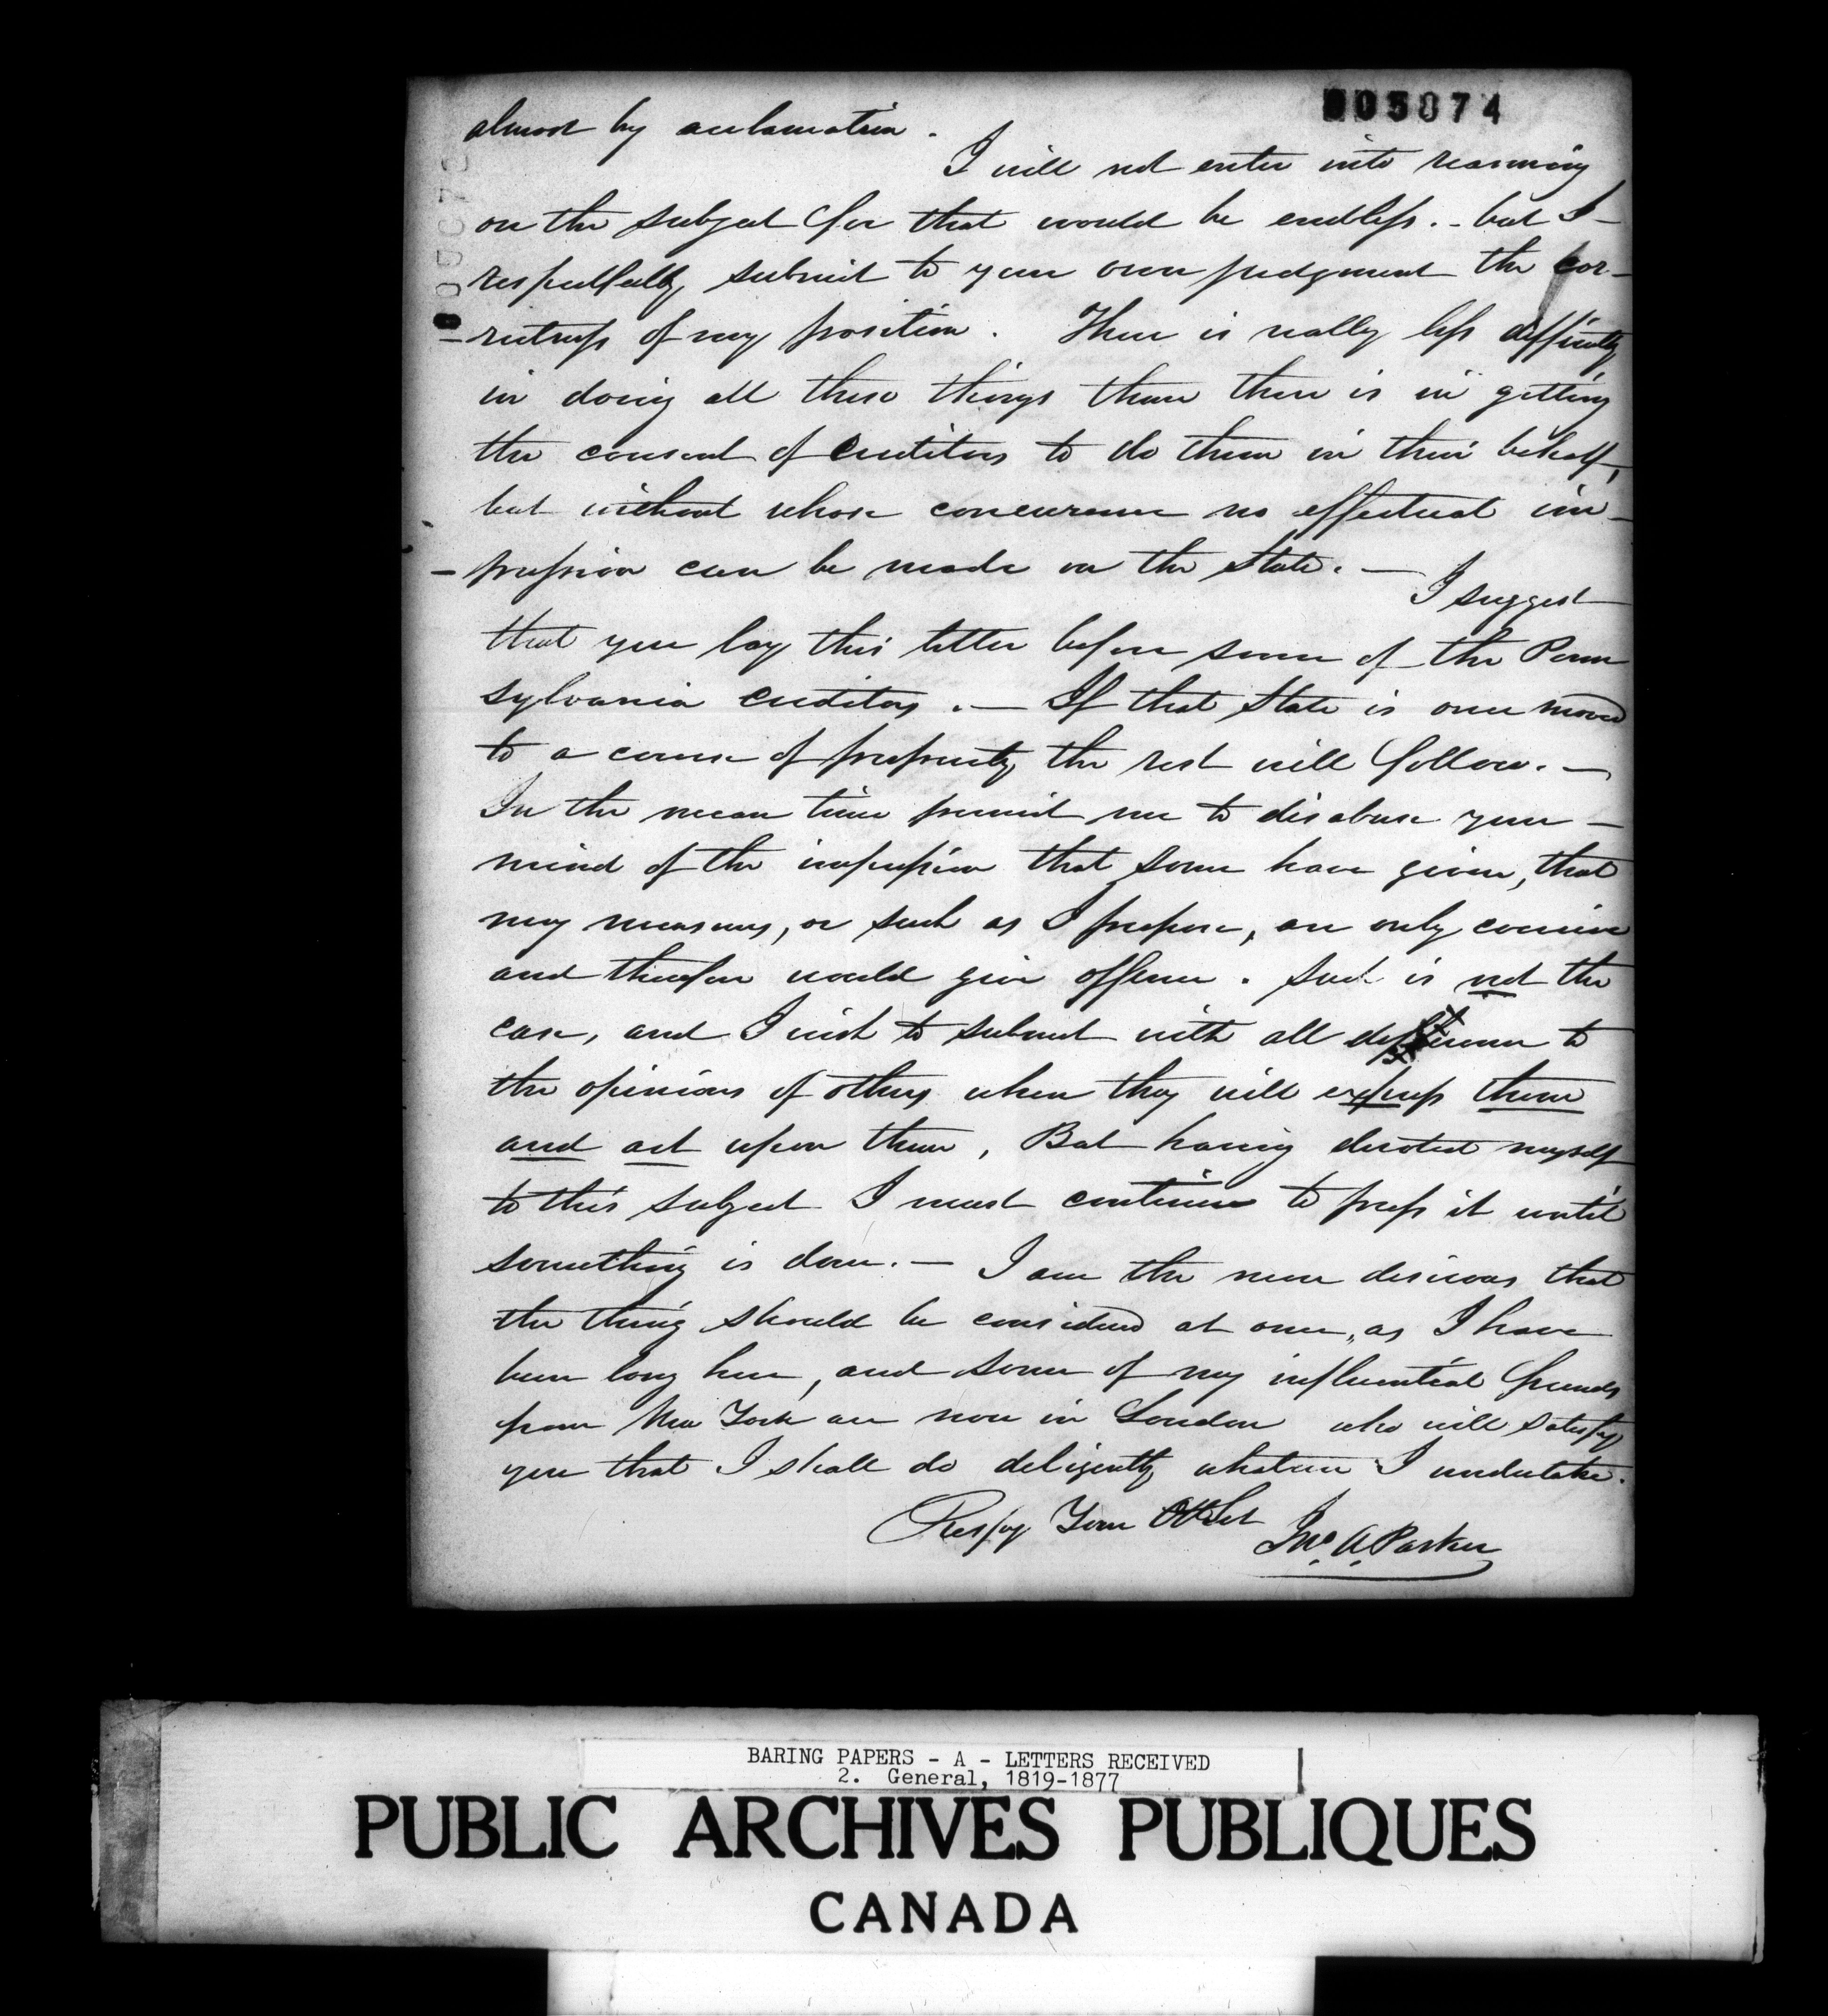 005074
almost by acclamation.
I will not enter into reasoning
on the subject for that would be endless. - but I
respectfully submit to your own judgment the cor-
-rectness of my position. There is really less difficulty
in doing all these things than there is in getting
the consent of creditors to do them in their behalf,
but without whose concurrence no effectual im-
-pression can be made on the State. —
I suggest
that you lay this letter before some of the Penn
sylvania creditors. — If that State is once moved
to a course of prosperity the rest will follow. —
In the mean time permit me to disabuse your —
mind of the impression that some have given, that
my measures, or such as I propose, are only coercive
and therefore would give offence. Such is not the
case, and I wish to submit with all deference to
the opinions of others when they will express them
and act upon them, But having devoted myself
to this subject I must continue to press it until
something is done. — I am the more desirous that
the thing should be considered at once, as I have
been long here, and some of my influential friends
from New York are now in London who will satisfy
you that I shall do deligently whatever I undertake.
Respy Your Ob Set
Jno. A. Parker
BARING PAPERS - A - LETTERS RECEIVED
2. General, 1819-1877
PUBLIC ARCHIVES PUBLIQUES
CANADA